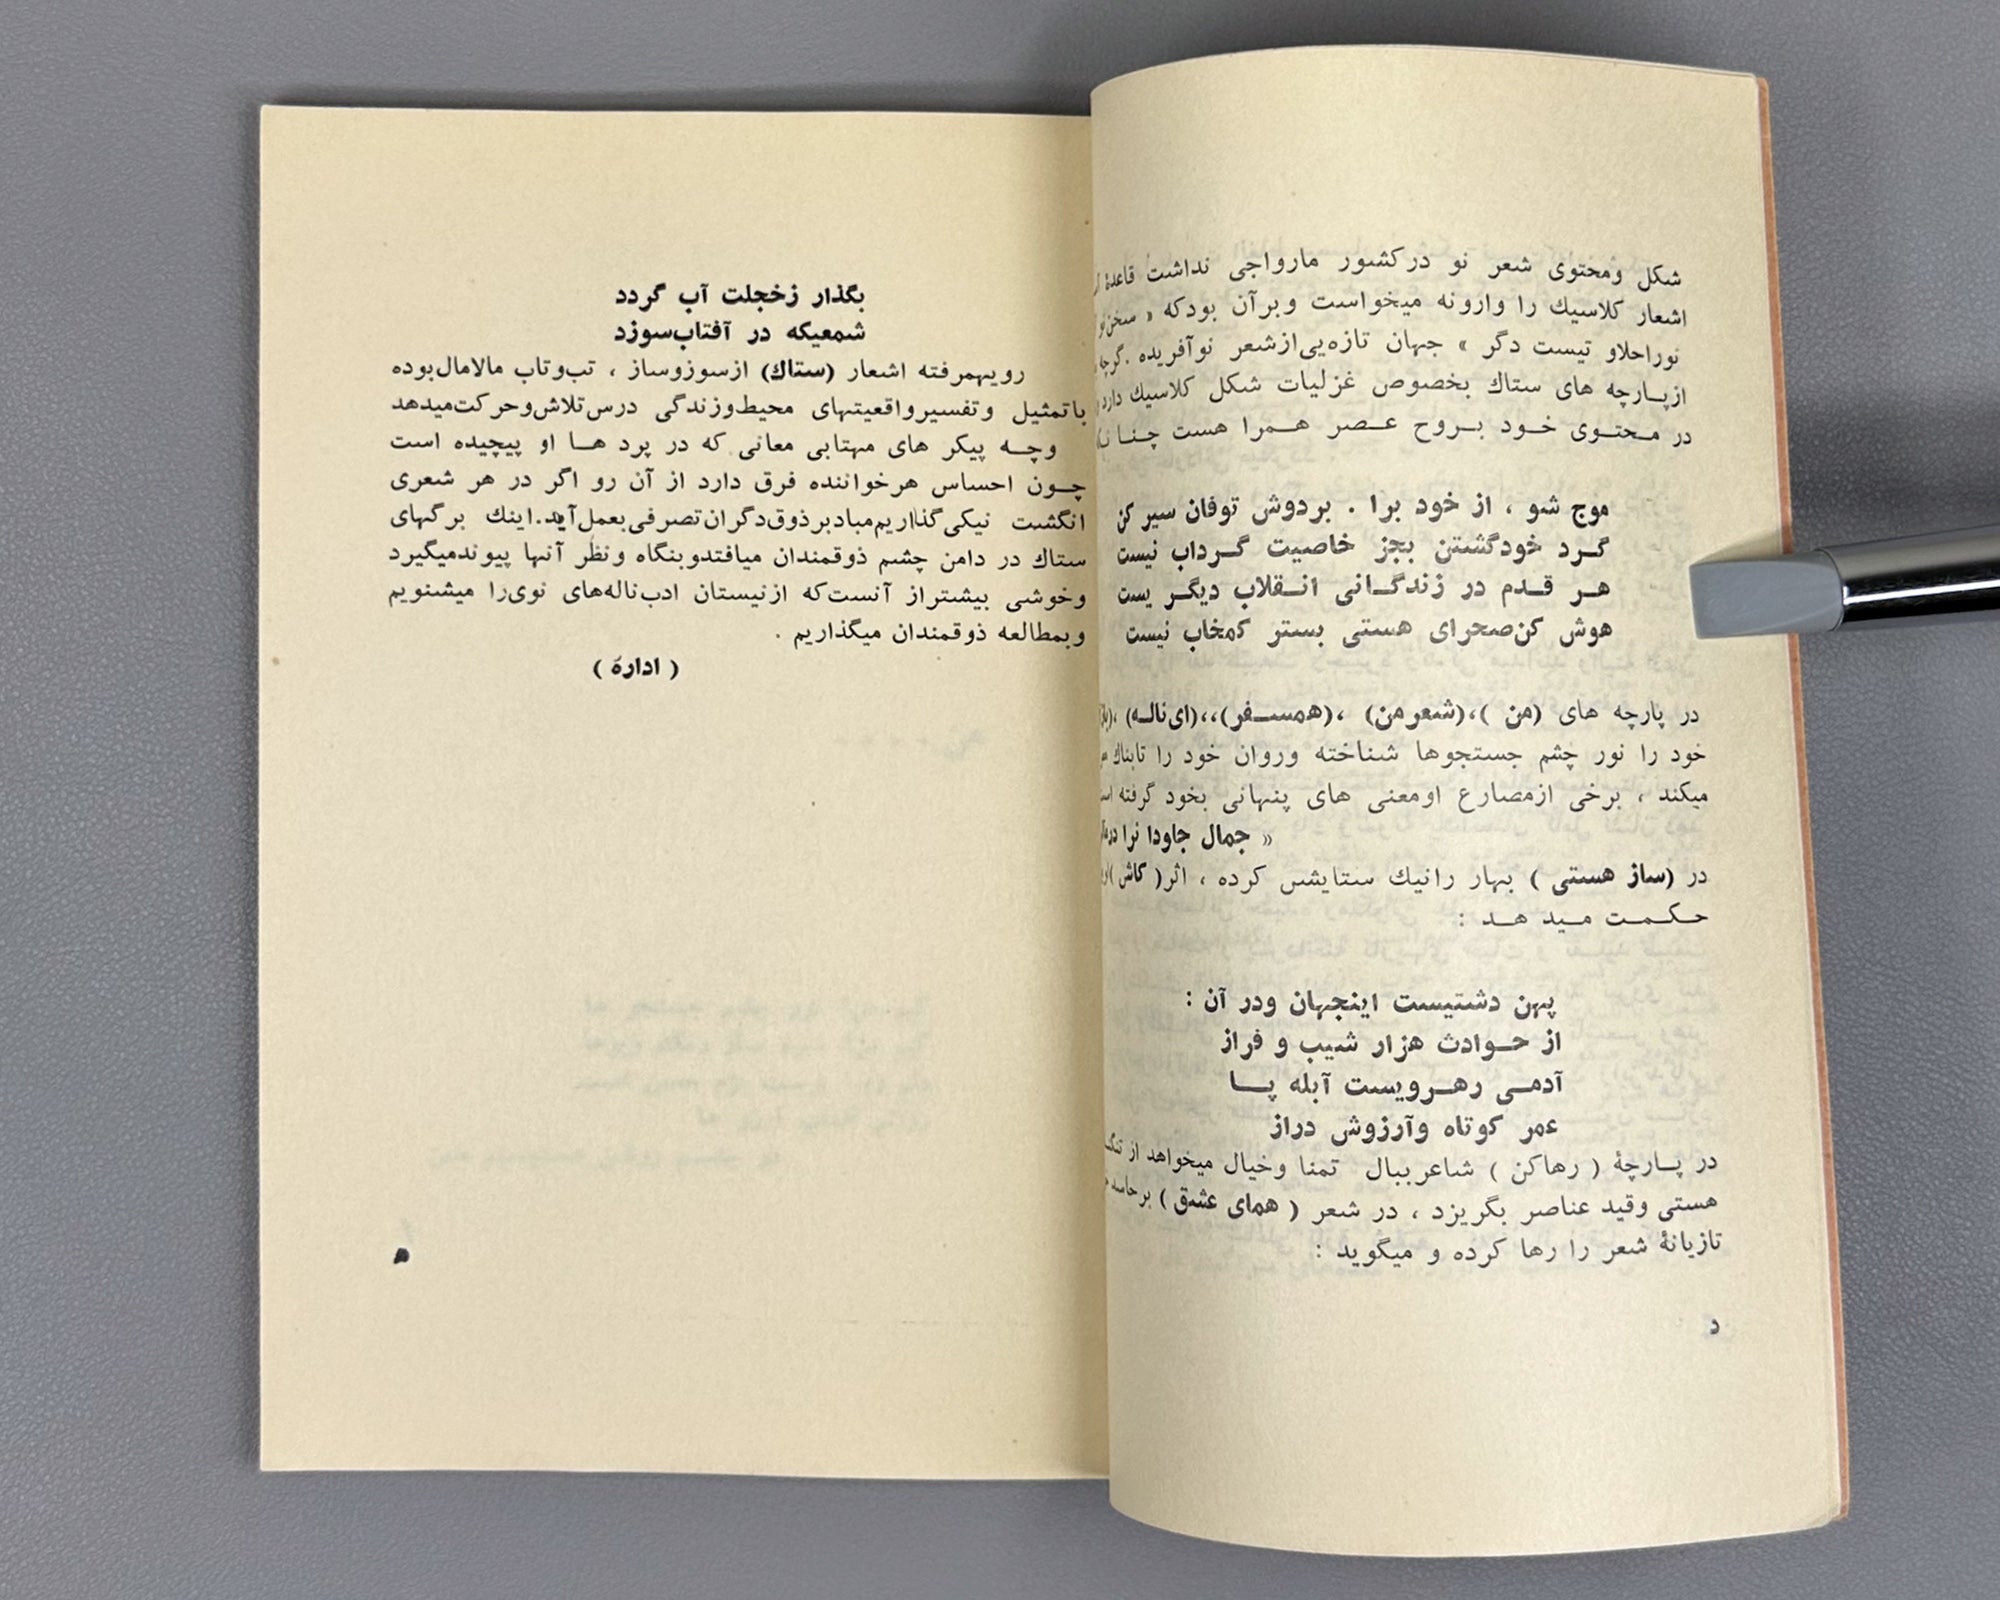 شکل ومحتوی شعر نو درکشور مارواجی نداشت قاعدهٔ
اشعار کلاسیك را وارونه میخواست وبرآن بودکه « سخن نو
نوراحلاو تیست دگر » جهان تازه‌یی‌ازشعر نوآفریده .گرچه
ازپـارچه های ستاك بخصوص غزلیات شکل کلاسیك دارد
در محـتوی خـود بـروح عـصر همـرا هست چـنا
موج شو ، از خود برا . بردوش توفان سیر کن
گـرد خودگشتن بجز خاصیت گـرداب نیست
هـر قـدم در زندگـانی انـقلاب دیگـر یست
هوش کن‌صحرای هستی بستر کمخاب نیست
در پارچه های (من )،(شعرمن) ،(همسـفر)،،(ای‌ناله)
خود را نور چشم جستجوها شناخته وروان خود را تابناك
میکند ، برخی ازمصارع اومعنی های پنهانی بخود گرفته
« جمال جاودا نرا
در (ساز هستی ) بهار رانیك ستایش کرده ، اثر( کاش )
حـکـمـت مـید هـد :
پهن دشتیست اینجهان ودر آن :
از حـوادث هزار شیب و فراز
آدمـی رهـرویست آبله پـا
عمر کوتاه وآرزوش دراز
در پـارچهٔ ( رهاکن ) شاعرببال تمنا وخیال میخواهد از
هستی وقید عناصر بگریزد ، در شعر ( همای عشق ) برحاسه
تازیانهٔ شعر را رها کرده و میگوید :
د
بگذار زخجلت آب گردد
شمعیکه در آفتاب‌سوزد
رویهمرفته اشعار (ستاك) ازسوزوساز ، تب‌وتاب مالامال‌بوده
باتمثیل وتفسیرواقعیتهای محیط‌وزندگی درس‌تلاش‌وحرکت‌میدهد
وچـه پیکر های مهتابی معانی که در پرد هـا او پیچیده است
چـون احساس هرخواننده فرق دارد از آن رو اگر در هر شعری
انگشت نیکی‌گذاریم‌مبادبرذوق‌دگران‌تصرفی‌بعمل‌آید.اینك برگهای
ستاك در دامن چشم ذوقمندان میافتدوبنگاه ونظر آنها پیوندمیگیرد
وخوشی بیشتراز آنست‌که ازنیستان ادب‌ناله‌های نوی‌را میشنویم
وبمطالعه ذوقمندان میگذاریم .
( اداره )